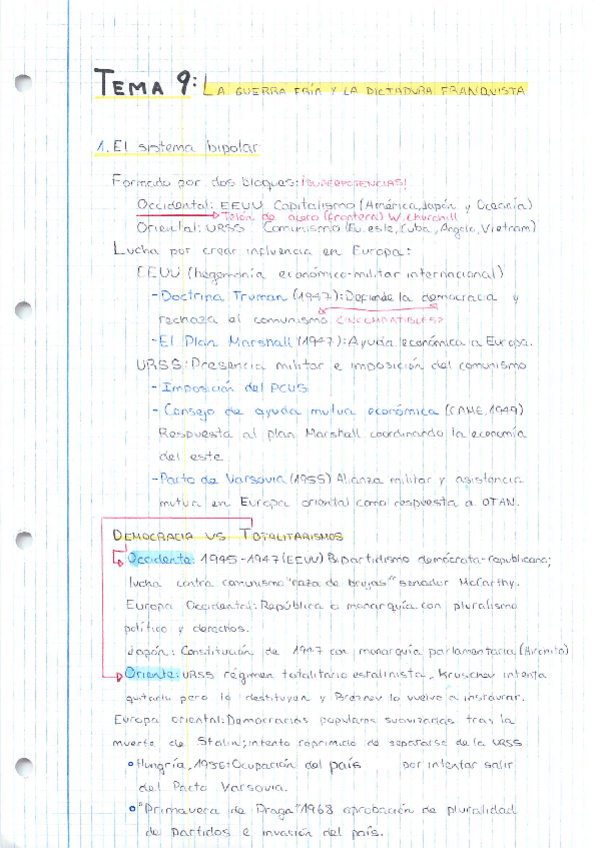 TEMA 9: LA GUERRA FRÍA Y LA DICTADURA FRANQUISTA
1. El sistema bipolar
Formado por dos bloques: ¡SUPERPOTENCIAS!
Occidental: EEUU Capitalismo (América, Japón y Oceanía)
Telón de acero (frontera) W. Churchill
Oriental: URSS Comunismo (Eu. este, Cuba, Angola, Vietnam)
Lucha por crear influencia en Europa:
EEUU (hegemonía económico-militar internacional)
- Doctrina Truman (1947): Defiende la democracia y
rechaza el comunismo ¿INCOMPATIBLES?
- El Plan Marshall (1947): Ayuda económica a Europa.
URSS: Presencia militar e imposición del comunismo
- Imposición del PCUS
- Consejo de ayuda mutua económica (CAME, 1949)
Respuesta al plan Marshall coordinando la economía
del este
- Pacto de Varsovia (1955) Alianza militar y asistencia
mutua en Europa oriental como respuesta a OTAN.
DEMOCRACIA VS TOTALITARISMOS
Occidente: 1945-1947 (EEUU) Bipartidismo demócrata-republicano;
lucha contra comunismo "caza de brujas" senador McCarthy.
Europa Occidental: República o monarquía con pluralismo
político y derechos.
Japón: Constitución de 1947 con monarquía parlamentaria (Hirohito)
Oriente: URSS régimen totalitario estalinista, Kruschev intenta
quitarlo pero le destituyen y Bréznev lo vuelve a instaurar.
Europa oriental: Democracias populares suavizadas tras la
muerte de Stalin; intento reprimido de separarse de la URSS
Hungría, 1956: Ocupación del país por intentar salir
del Pacto Varsovia.
"Primavera de Praga" 1968 aprobación de pluralidad
de partidos e invasión del país.